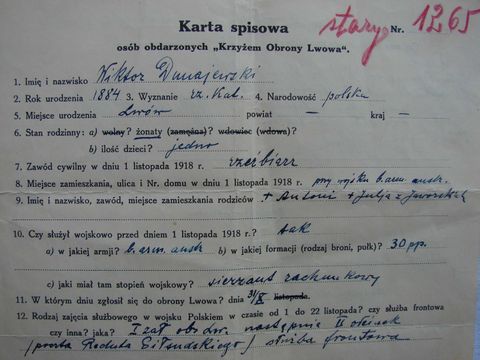 Karta spisowa
stary Nr. 1265
osób obdarzonych „Krzyżem Obrony Lwowa".
1. Imię i nazwisko Wiktor Dunajewski
2. Rok urodzenia 1884 3. Wyznanie rz. kat. 4. Narodowość polska
5. Miejsce urodzenia Lwów powiat — kraj —
6. Stan rodzinny: a) wolny? żonaty (zamężna)? wdowiec (wdowa)?
b) ilość dzieci? jedno
7. Zawód cywilny w dniu 1 listopada 1918 r. rzeźbiarz
8. Miejsce zamieszkania, ulica i Nr. domu w dniu 1 listopada 1918 r. przy wojsku b. arm. austr.
9. Imię i nazwisko, zawód, miejsce zamieszkania rodziców + Antoni + Julja z Jaworskich
10. Czy służył wojskowo przed dniem 1 listopada 1918 r.? tak
a) w jakiej armji? b. arm. austr b) w jakiej formacji (rodzaj broni, pułk)? 30 pp.
c) jaki miał tam stopień wojskowy? sierżant rachunkowy
11. W którym dniu zgłosił się do obrony Lwowa? dnia 31/X listopada.
12. Rodzaj zajęcia służbowego w wojsku Polskiem w czasie od 1 do 22 listopada? czy służba frontowa
czy inna? jaka? I zał. ob. Lw. następnie II odcinek
(poczta Reduta Piłsudskiego) służba frontowa